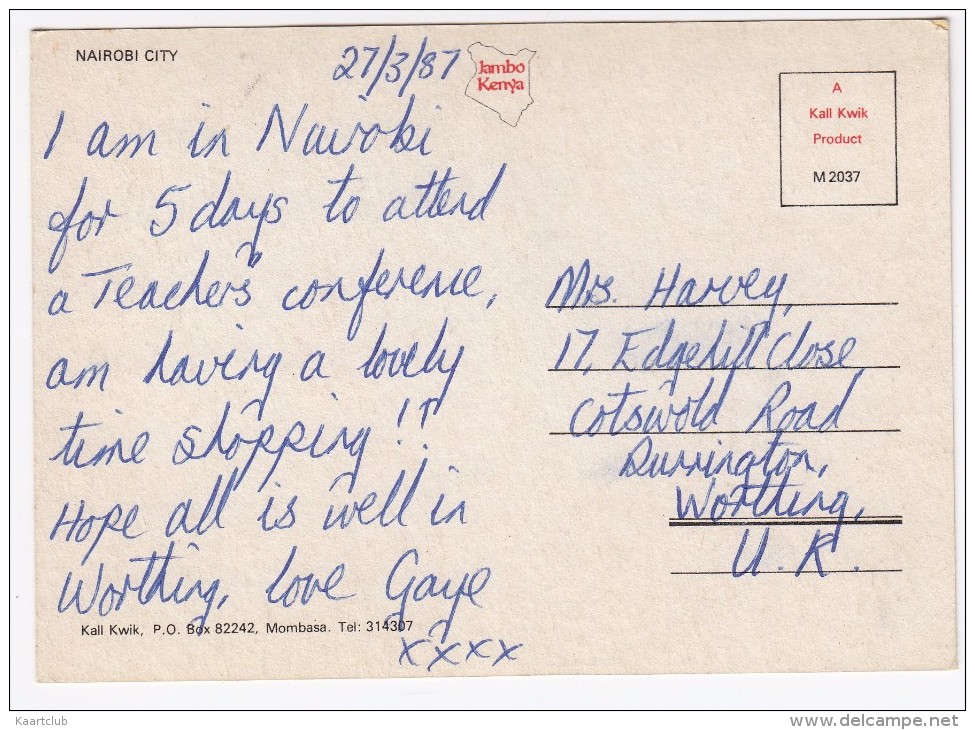 NAIROBI CITY
27/3/87
Jambo
Kenya
A
Kall Kwik
Product
M 2037
I am in Nairobi
for 5 days to attend
a Teacher's conference,
am having a lovely
time shopping!!
Hope all is well in
Worthing, love Gaye
xxxx
Kall Kwik, P.O. Box 82242, Mombasa. Tel: 314307
Mrs. Harvey,
17, Edgehill Close,
Cotswold Road
Durrington,
Worthing,
U.K.
Kaartclub
delcampe.net